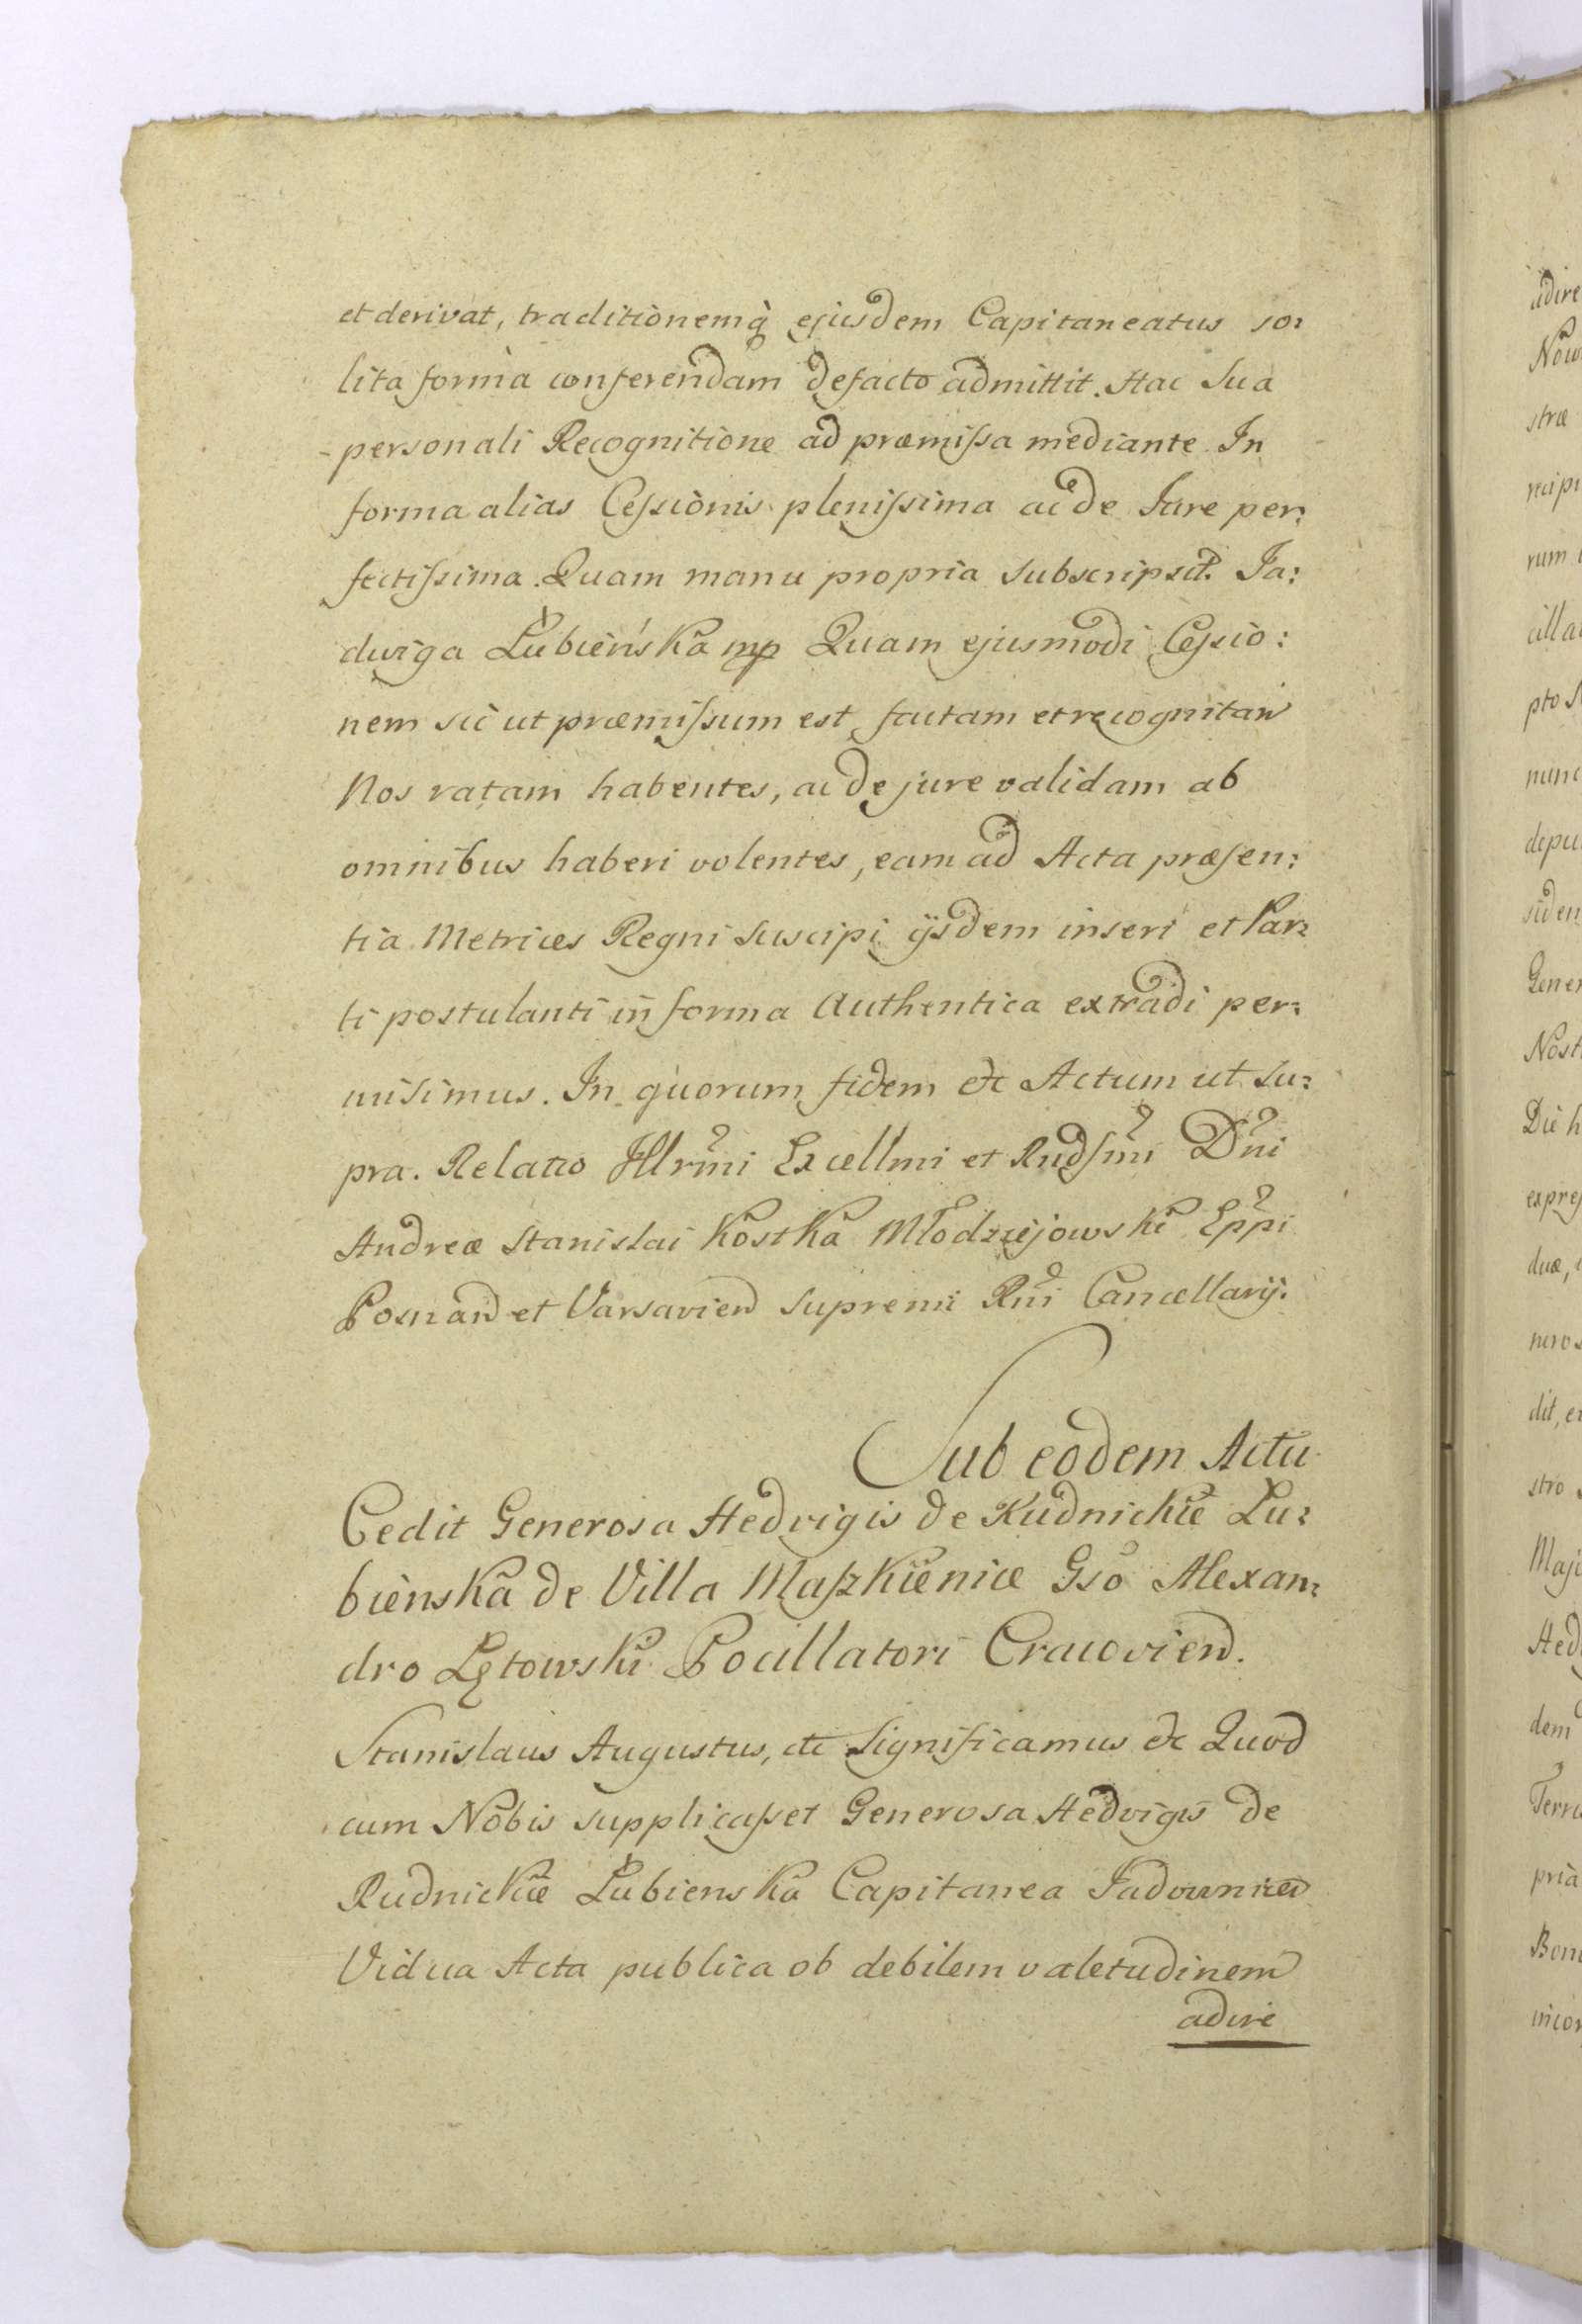 et derivat, traditionemq̀ ejusdem Capitaneatus so:
lita forma conferendam defacto admittit. Hac Sua
personali Recognitione ad præmissa mediante In
forma alias Cessionis plenissima ac de Jure per:
fectissima. Quam manu propria subscripsit. Ja:
dwiga Łubieńska mp Quam ejusmodi Cessio:
nem sic ut præmissum est factam et recognitam
Nos ratam habentes, ac de jure validam ab
omnibus haberi volentes, eam ad Acta præsen:
tia Metrices Regni suscipi ijsdem inseri et Par:
ti postulanti in forma Authentica extradi per:
misimus. In quorum fidem etc Actum ut su:
pra. Relatio Illrmi Excellmi et Rndsmi Dni
Andreæ Stanislai Kostka Młodziejowski Eppi
Posnan et Varsavien Supremi Rni Cancellarij.
Sub eodem Actu
Cedit Generosa Hedvigis de Rudnickie Lu:
bienska de Villa Maszkienice Gso Alexan:
dro Łętowski Pocillatori Cracovien.
Stanislaus Augustus, etc Significamus etc Quod
cum Nobis supplicasset Generosa Hedvigis de
Rudnickie Łubienska Capitanea Jadovnicen
Vidua Acta publica ob debilem valetudinem
adire
adire
stræ
recipi
rum
cilla
pto S
nunc
depu
siden
Gener
Nost
Die h
expres
duæ,
neros
dit, et
stro
Maje
Hed
dem
Terra
pria
Bon
incor